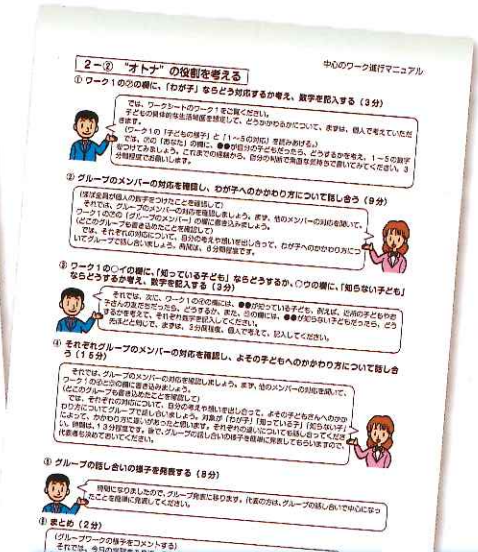 中心のワーク進行マニュアル
2-② "オトナ"の役割を考える
① ワーク1の㋐の欄に、「わが子」ならどう対応するか考え、数字を記入する（3分）
では、ワークシートのワーク1をご覧ください。
子どもの具体的な生活場面を想定して、どうかかわるかについて、まずは、個人で考えていただ
きます。
（ワーク1の「子どもの様子」と「1～5の対応」を読みあげる。）
では、㋐の「あなた」の欄に、●●が自分の子どもだったら、どうするかを考え、1～5の数字
をつけてみましょう。これまでの経験から、自分の判断で素直な気持ちで書いてみてください。3
分間程度でお願いします。
② グループのメンバーの対応を確認し、わが子へのかかわり方について話し合う（9分）
（ほぼ全員が個人の数字をつけたことを確認して）
それでは、グループのメンバーの対応を確認しましょう。まず、他のメンバーの対応を聞いて、
ワーク1の㋐の「グループのメンバー」の欄に書き込みましょう。
（どこのグループも書き込めたことを確認して）
では、それぞれの対応について、自分の考えや想いを出し合って、わが子へのかかわり方につ
いてグループで話し合いましょう。時間は、6分間程度です。
③ ワーク1の○イの欄に、「知っている子ども」ならどうするか、○ウの欄に、「知らない子ども」
ならどうするか考え、数字を記入する（3分）
それでは、次に、ワーク1の㋑の欄には、●●が知っている子ども、例えば、近所の子どもやお
子さんの友だちだったら、どうするか、また、㋒の欄には、●●が知らない子どもだったら、どう
するかを考えて、それぞれ数字を記入してください。
先ほどと同じで、まずは、3分間程度、個人で考えて、記入してください。
④ それぞれグループのメンバーの対応を確認し、よその子どもへのかかわり方について話し合
う（15分）
それでは、グループのメンバーの対応を確認しましょう。まず、他のメンバーの対応を聞いて、
ワーク1の㋑と㋒の欄に書き込みましょう。
（どこのグループも書き込めたことを確認して）
では、それぞれの対応について、自分の考えや想いを出し合って、よその子どもさんへのかか
わり方についてグループで話し合いましょう。対象が「わが子」「知っている子」「知らない子」
によって、かかわり方に違いがあったと思います。それぞれの違いについても話し合ってくださ
い。時間は、13分程度です。後で、グループの話し合いの様子を簡単に発表してもらいますので、
代表者も決めておいてください。
⑤ グループの話し合いの様子を発表する（8分）
時間になりましたので、グループ発表に移ります。代表の方は、グループの話し合いで中心になっ
たことを簡単に発表してください。
まとめ（2分）
（グループワークの様子をコメントする）
それでは、今日の